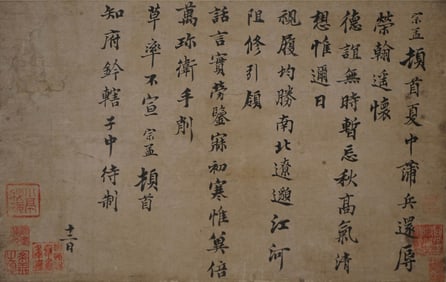 宗孟頓首夏中蒲兵還辱
榮翰遥懷
德誼無時暫忘秋高氣清
想惟邇日
視履均勝南北遼邈江河
阻修引領
話言實勞鑒寐初寒惟冀倍
萬珎衛手削
草率不宣宗孟頓首
知府鈐轄子中待制
十一日